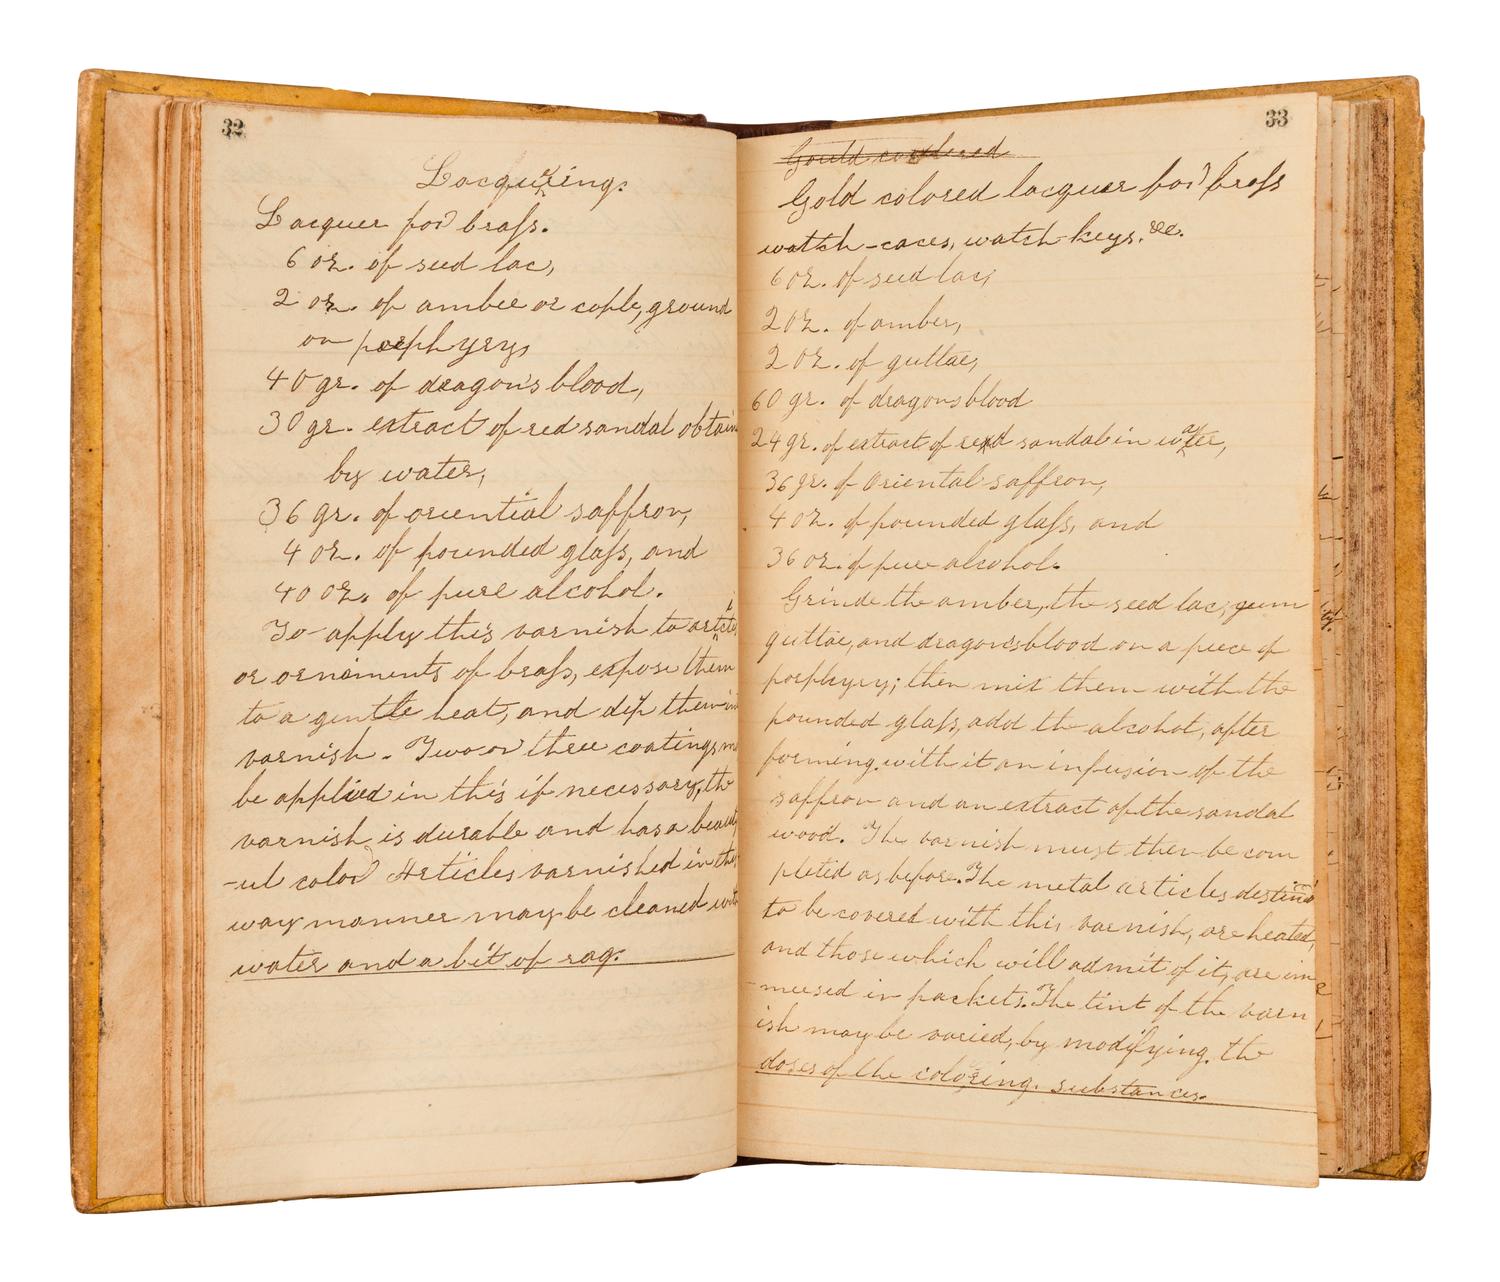 32
Lacquering.
Lacquer for brass.
6 oz. of seed lac,
2 oz. of amber or cople, ground
on porphyry,
40 gr. of dragon's blood,
30 gr. extract of red sandal obtain
by water,
36 gr. of oriential saffron,
4 oz. of pounded glass, and
40 oz. of pure alcohol.
To apply this varnish to articles
or ornaments of brass, expose them
to a gentle heat, and dip them in
varnish. Two or three coatings m
be applied in this if necessary, the
varnish is durable and has a beauty
-ul color Articles varnished in this
way manner may be cleaned with
water and a bit of rag.
33
Gould coulered
Gold colored lacquer for brass
watch-cases, watch-keys, &c.
6 oz. of seed lac,
2 oz. of amber,
2 oz. of guttae,
60 gr. of dragons blood
24 gr. of extract of red sandal in water,
36 gr. of Oriental saffron,
4 oz. of pounded glass, and
36 oz. of pure alcohol.
Grinde the amber, the seed lac, gum
guttae, and dragonsblood on a piece of
porphyry; then mix them with the
pounded glass, add the alcohol, after
forming with it an infusion of the
saffron and an extract of the sandal
wood. The varnish must then be com
pleted as before. The metal articles destined
to be covered with this varnish, are heated,
and those which will admit of it, are im
-mersed in packets. The tint of the varn
ish may be varied, by modifying the
doses of the coloring substances.